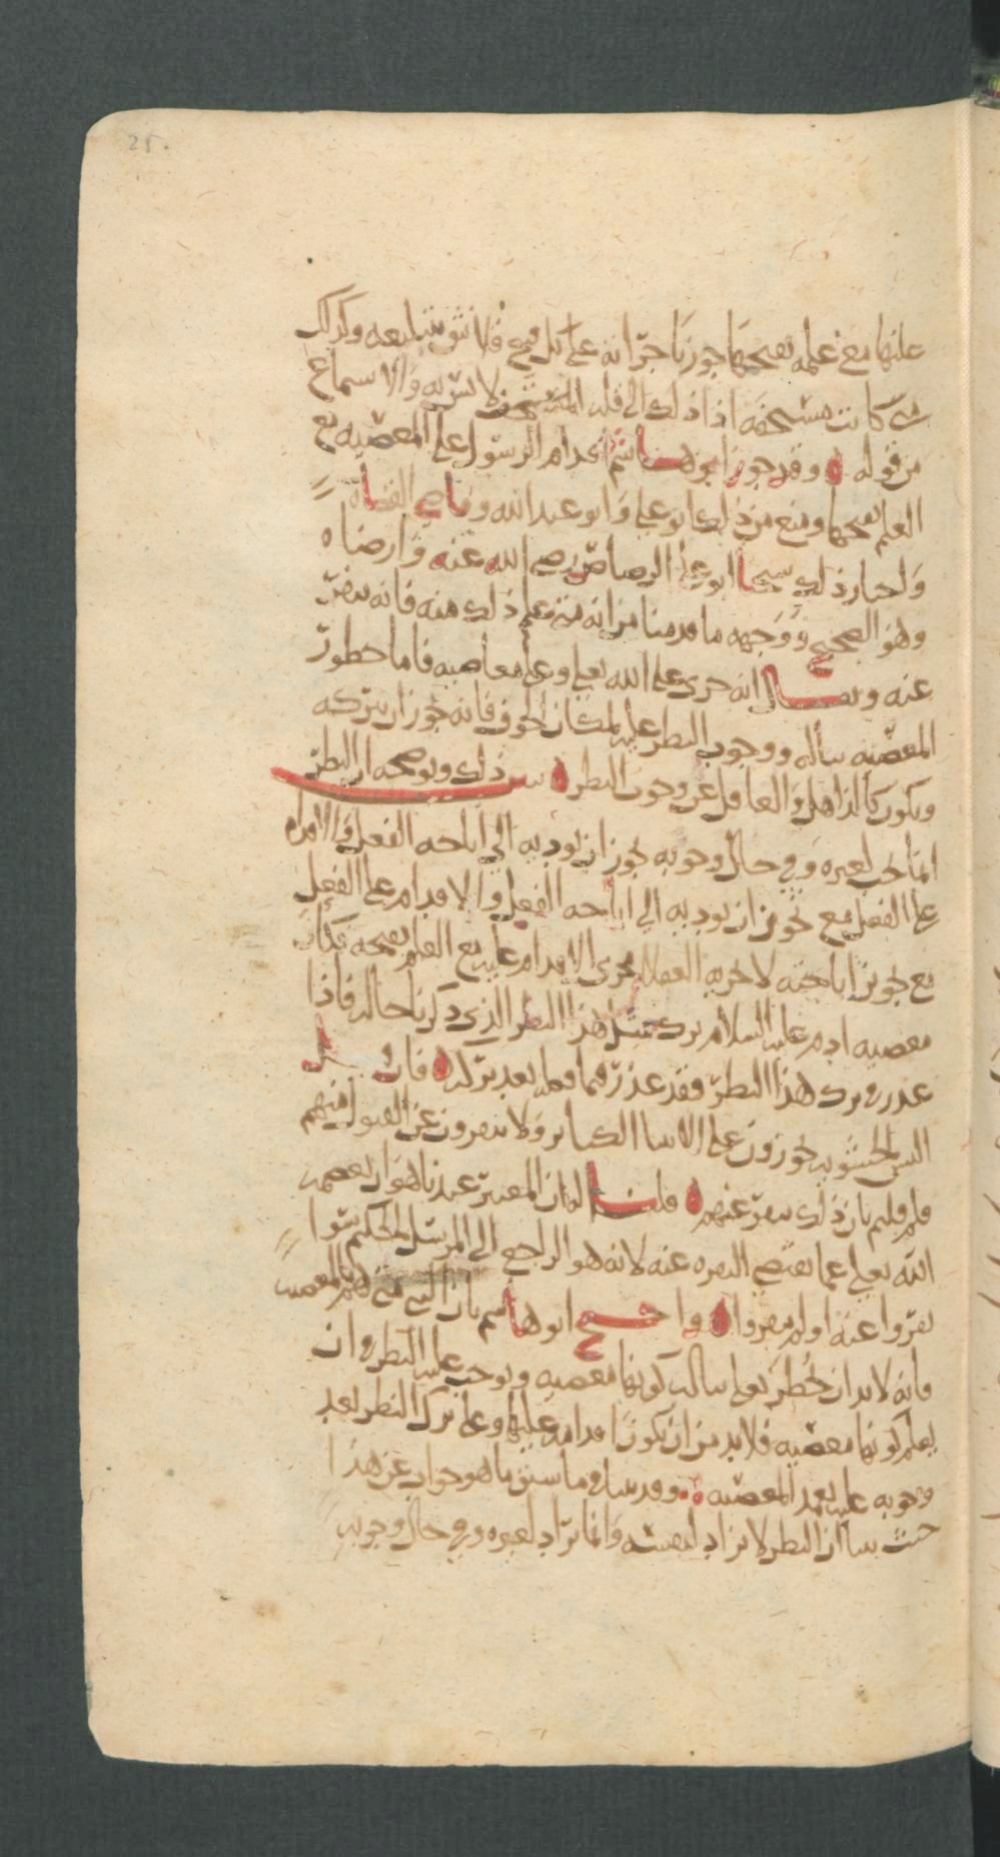 عليها مع علمه بقبحها جوزنا جرأته على كل قبيح فلا نثق بتبليغه وكذلك
متى كانت مستخفه اذا ذلك الى قله فلا نثق به والاسماع
من قوله ه وقد جوز ابو هاشم اقدام الرسول على المعصيه مع
العلم بقبحها ومنع من ذلك ابو علي وابو عبد الله وقاضي القضاه
واختار ذلك شيخنا ابو علي الرصاص رضي الله عنه وارضاه
وهو الصحيح ووجهه ما قدمنا من انه متى علم ذلك منه فانه ينفر
عنه ويقال انه جرى على الله تعلى وعلى معاصيه فاما خطور
المعصيه بباله ووجوب النظر عليه لمكان الخوف فانه يجوز ان يتركه
ويكون كالذاهل والغافل عن وجوب النظر ه يبين ذلك ويوضحه ان النظر
انما يجب لغيره وفي حال وجوبه يجوز ان يوديه الى اباحه الفعل والاقدام
على الفعل مع تجويز ان يوديه الى اباحه الفعل والاقدام على الفعل
مع تجويز اباحته لا يجريه العقلا مجرى الاقدام عليه مع العلم بقبحه فكان
معصيه ادم عليه السلام ترك مثل هذا النظر الذي ذكرنا حاله فاذا
عذر في ترك هذا النظر فقد عذر فيما فعله بعد تركه ه فان قيل
اليس الحشويه يجوزون على الانبيا الكبائر ولا ينفرون عن القبول منهم
فلم قلتم بان ذلك ينفر عنهم ه قلنا لان المعتبر عندنا هو ان يعصمه
الله تعلى عما يقتضي النفره عنه لانه هو الراجع الى المرسل الحكيم سوا
نفروا عنه او لم ينفروا ه واحتج ابو هاشم بان النبي متى هم بالمعصيه
فانه لا بد ان يخطر تعلى بباله كونها معصيه ويوجب عليه النظر في ان
يعلم كونها معصيه فلا بد من ان يكون اقدامه عليها وعلى ترك النظر بعد
وجوبه عليه تعمد المعصيه ه وقد بينا في ما سبق ما هو جواب عن هذا
حيث بينا ان النظر لا يراد لنفسه وانما يراد لغيره وفي حال وجوبه